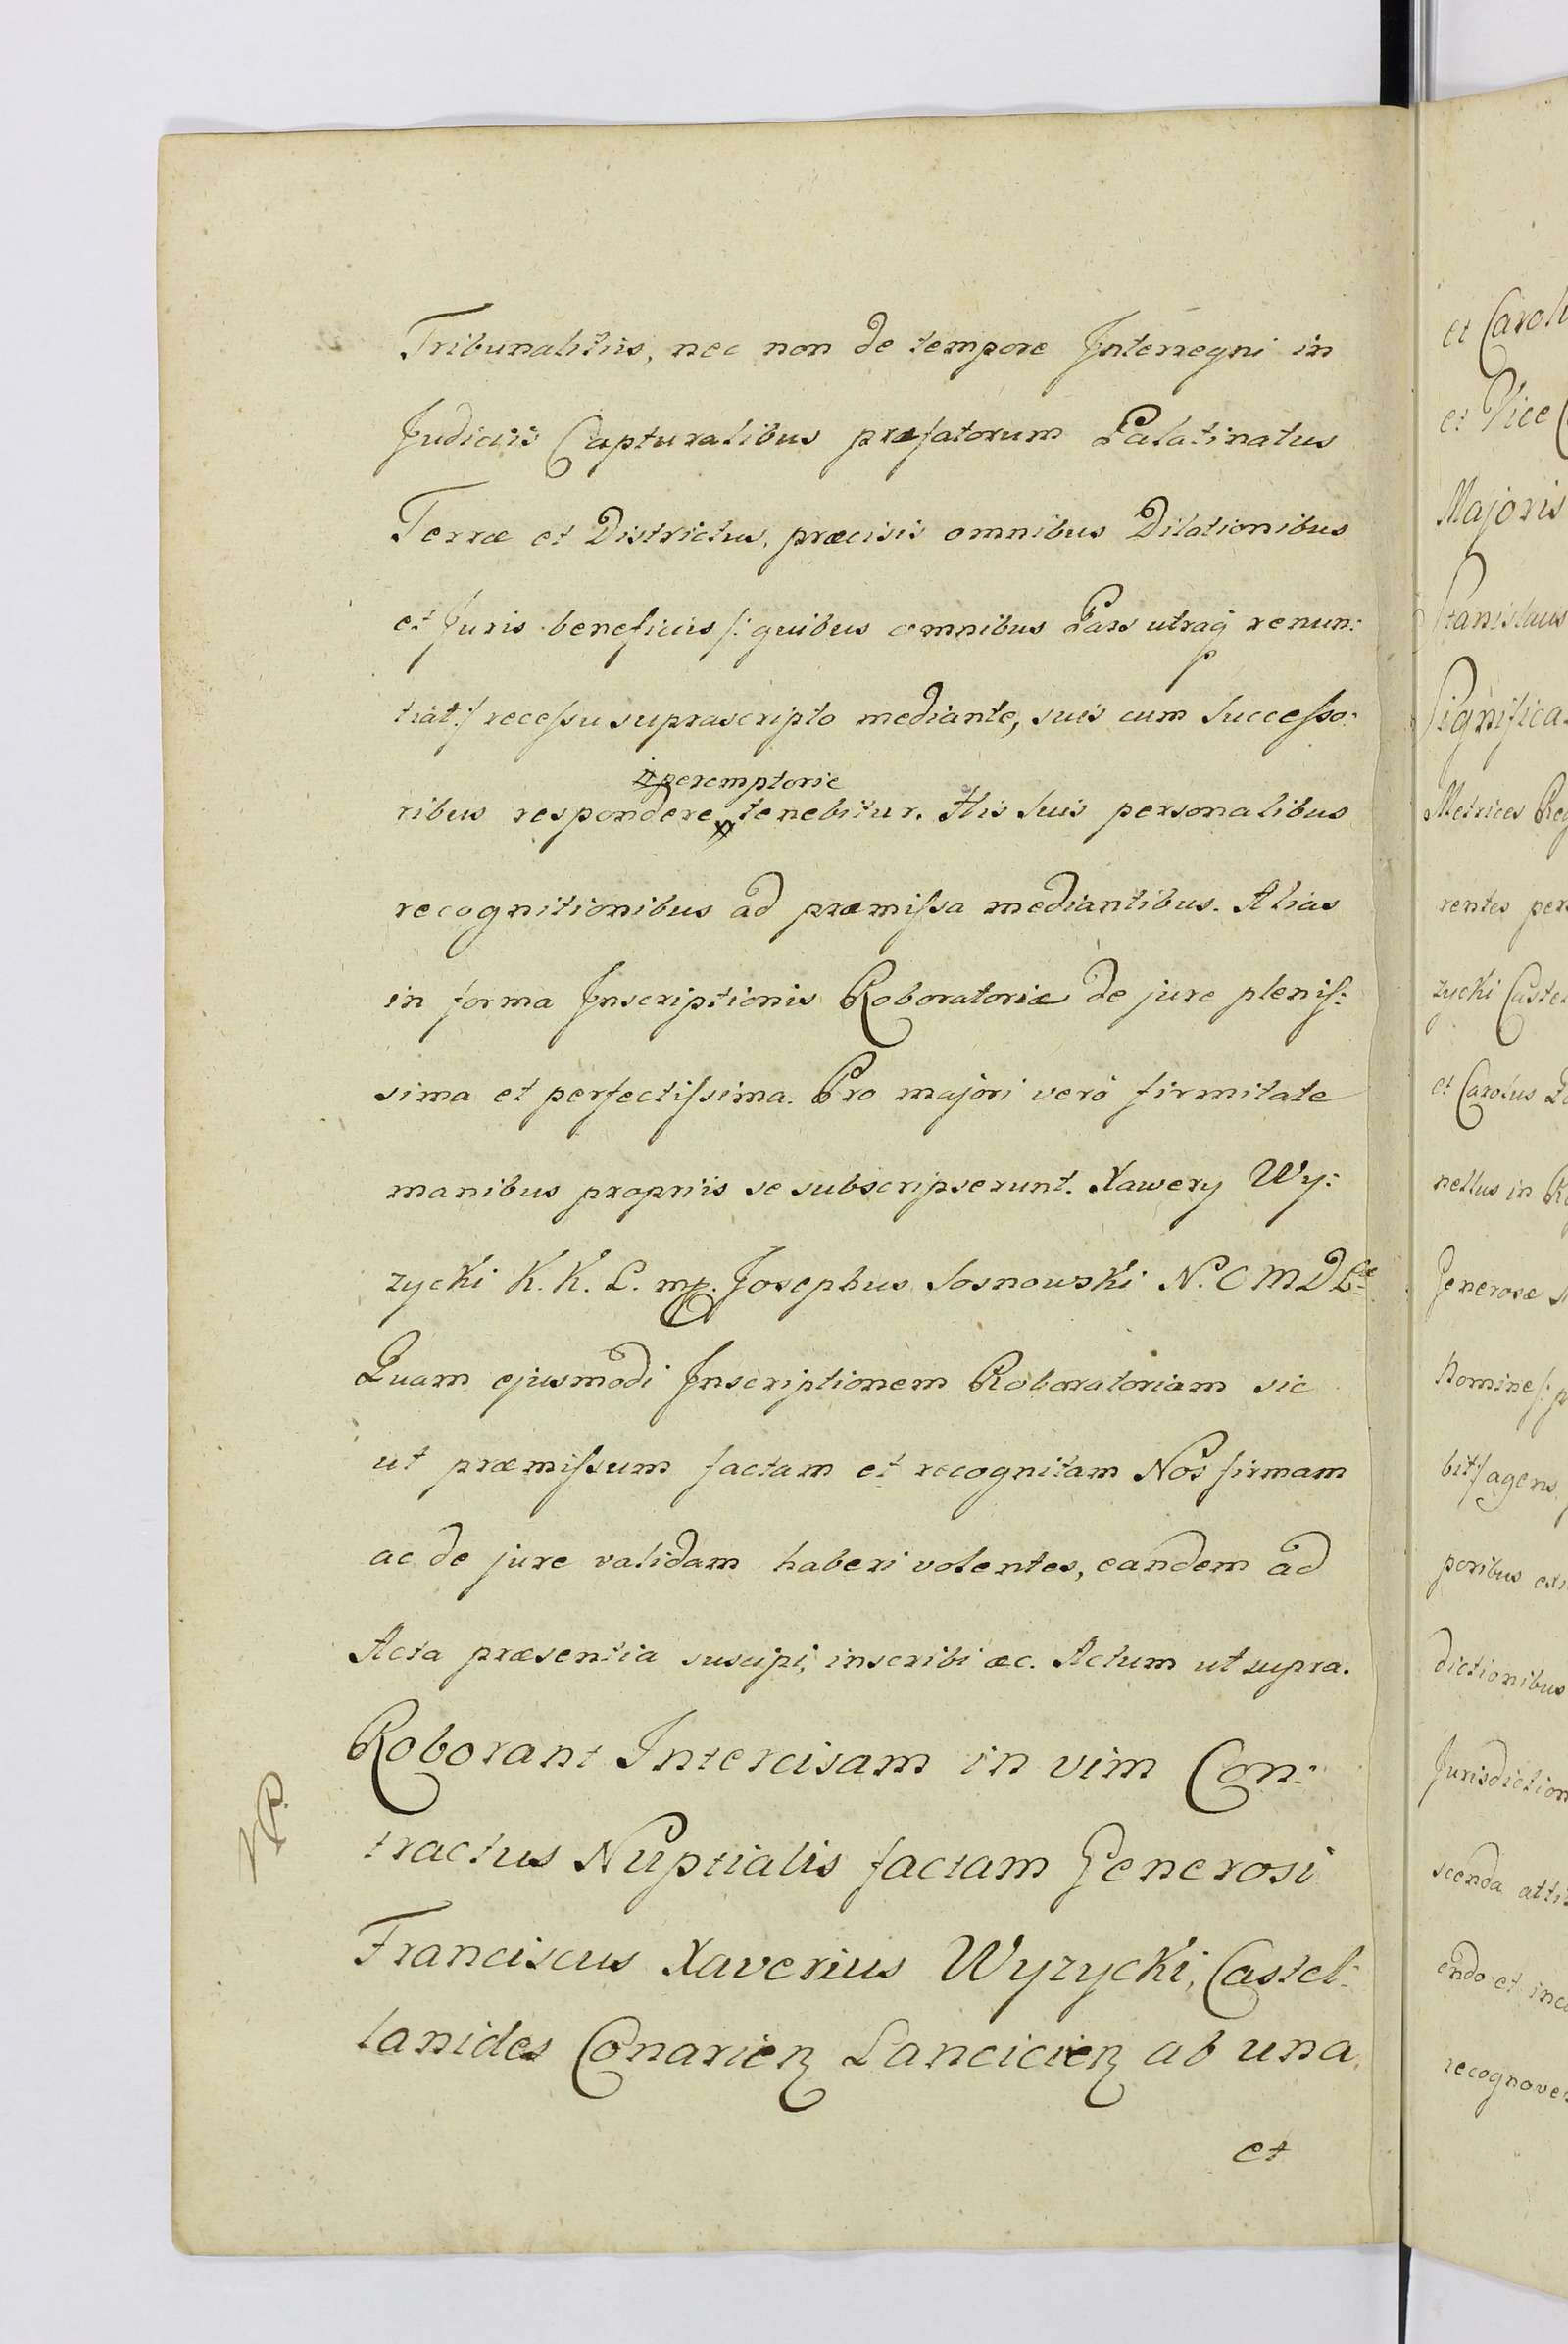 Tribunalitiis, nec non de tempore Interregni in
Judiciis Capturalibus præfatorum Palatinatus
Terræ et Districtus, præcisis omnibus Dilationibus
et Juris beneficiis /: quibus omnibus Pars utraq renun:
tiat :/ recessu suprascripto mediante, suis cum Successo:
# peremptorie
ribus respondere # tenebitur. His suis personalibus
recognitionibus ad præmissa mediantibus. Alias
in forma Inscriptionis Roboratoriæ de jure plenis:
sima et perfectissima. Pro majori vero firmitate
manibus propriis se subscripserunt. Xawery Wy:
zycki K. K. L. mp. Josephus Sosnowski N. C M D L
Quam ejusmodi Inscriptionem Roboratoriam sic
ut præmissum factam et recognitam Nos firmam
ac de jure validam haberi volentes, eandem ad
Acta præsentia suscipi, inscribi æc. Actum ut supra.
Roborant Intercisam in vim Con:
tractus Nuptialis factam Generosi
Franciscus Xaverius Wyzycki, Castel:
lanides Conarien Lancicien ab una
et
et Caroli
et Vice
Majoris
Stanislaus
Significa
Metrices Reg
rentes per
zycki Castel
et Carolus
nellus in
Generosæ
Nomine /: p
bit :/ agens
poribus
dictionibus
Jurisdiction
scenda atti
endo et inc
recognove